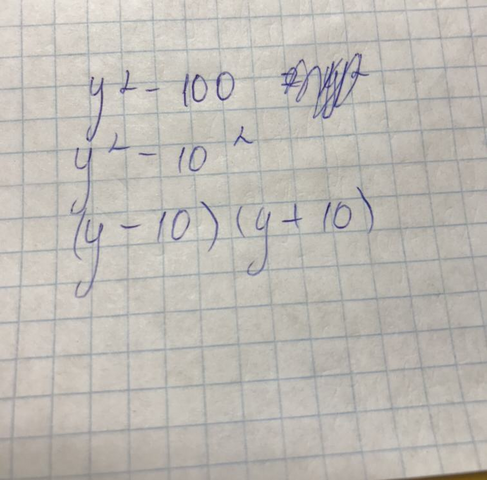 y² - 100
y² - 10²
(y - 10)(y + 10)